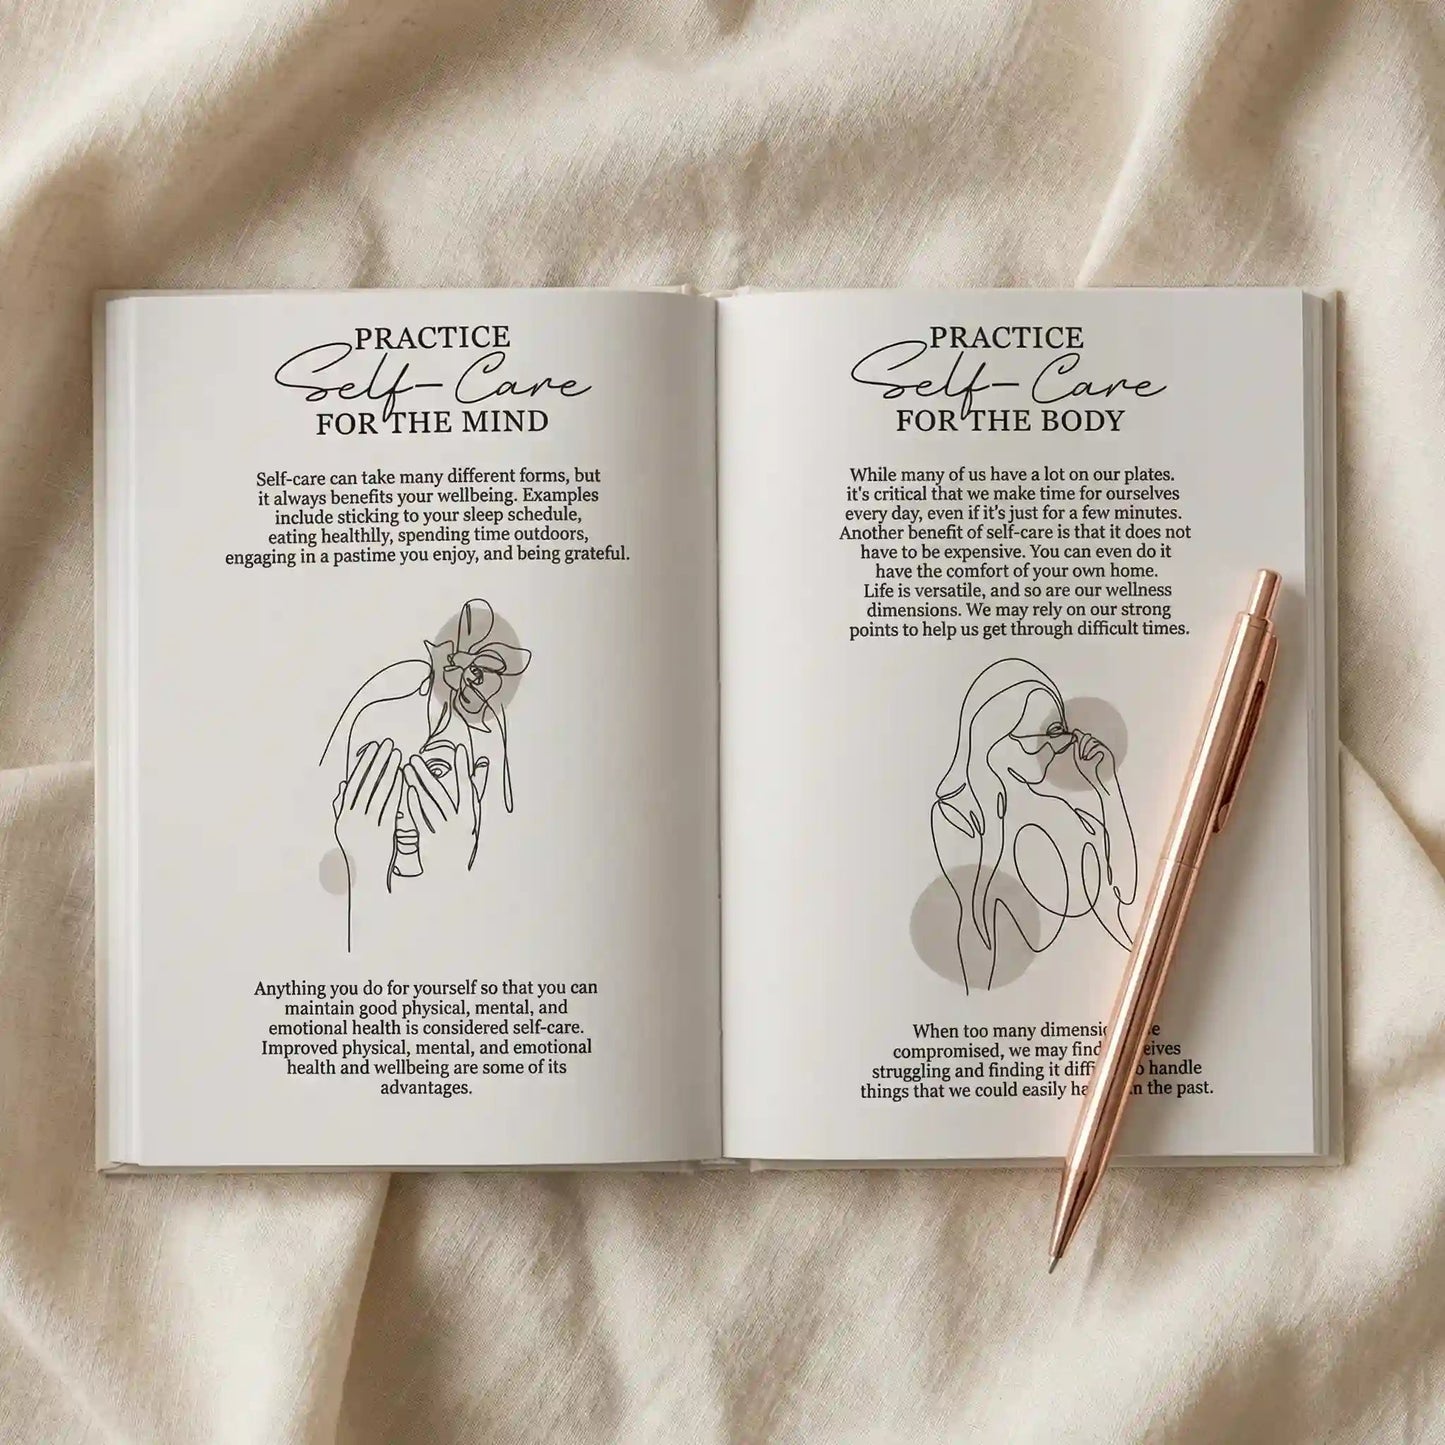 PRACTICE
Self-Care
FOR THE MIND
Self-care can take many different forms, but
it always benefits your wellbeing. Examples
include sticking to your sleep schedule,
eating healthlly, spending time outdoors,
engaging in a pastime you enjoy, and being grateful.
Anything you do for yourself so that you can
maintain good physical, mental, and
emotional health is considered self-care.
Improved physical, mental, and emotional
health and wellbeing are some of its
advantages.
PRACTICE
Self-Care
FOR THE BODY
While many of us have a lot on our plates.
it's critical that we make time for ourselves
every day, even if it's just for a few minutes.
Another benefit of self-care is that it does not
have to be expensive. You can even do it
have the comfort of your own home.
Life is versatile, and so are our wellness
dimensions. We may rely on our strong
points to help us get through difficult times.
When too many
compromised, we may find
struggling and finding it handle
things that we could easily in the past.